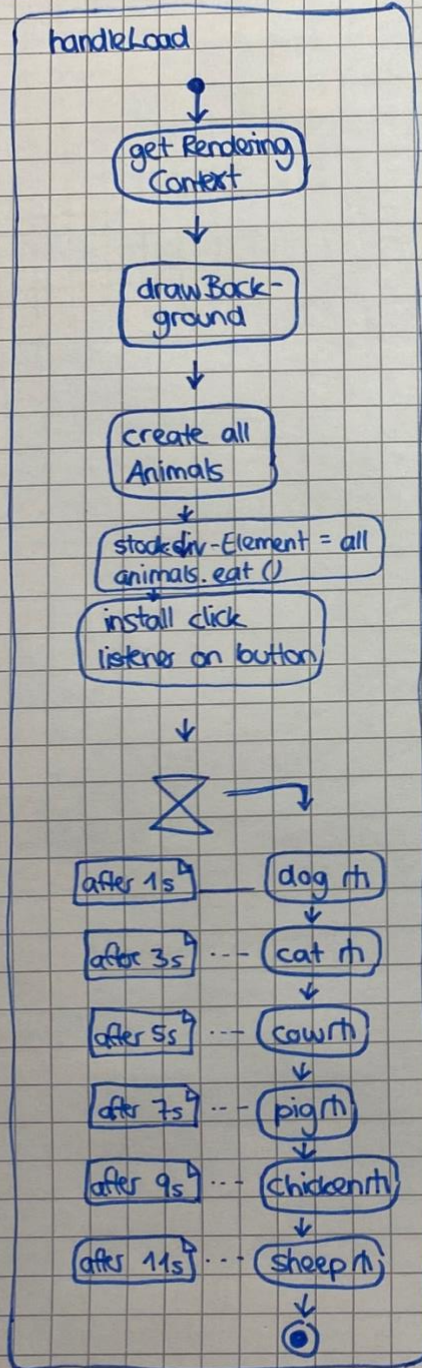 handleLoad
get Rendering
Context
drawBack-
ground
create all
Animals
stockdiv-Element = all
animals.eat ()
install click
listener on button
after 1s
dog
after 3s
cat
after 5s
cow
after 7s
pig
after 9s
chicken
after 11s
sheep